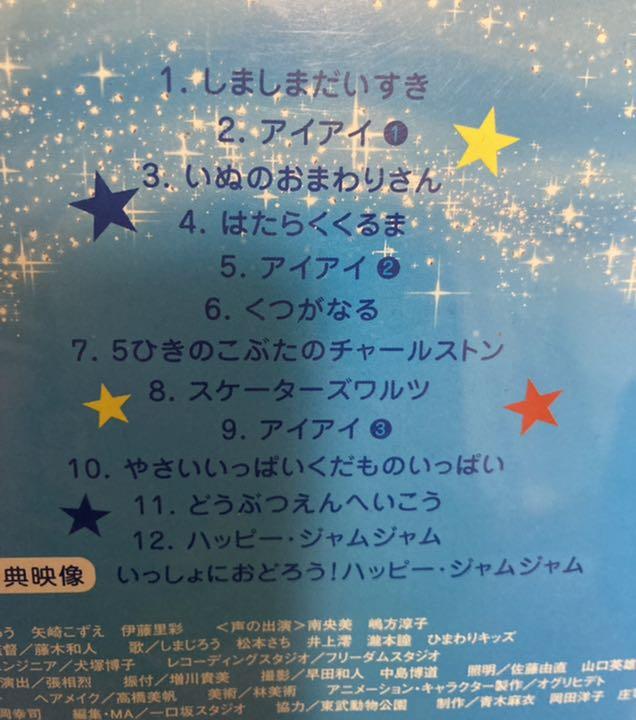 1. しましまだいすき
2. アイアイ❶
3. いぬのおまわりさん
4. はたらくくるま
5. アイアイ❷
6. くつがなる
7. 5ひきのこぶたのチャールストン
8. スケーターズワルツ
9. アイアイ❸
10. やさいいっぱいくだものいっぱい
11. どうぶつえんへいこう
12. ハッピー・ジャムジャム
典映像 いっしょにおどろう!ハッピー・ジャムジャム
う 矢崎こずえ 伊藤里彩 <声の出演>南央美 嶋方淳子
監督/藤木和人 歌/しまじろう 松本さち 井上澪 瀧本瞳 ひまわりキッズ
ンジニア/犬塚博子 レコーディングスタジオ/フリーダムスタジオ
演出/張相烈 振付/増川貴美 撮影/早田和人 中島博道 照明/佐藤由直 山口英雄
ヘアメイク/高橋美帆 美術/林美術 アニメーション・キャラクター製作/オグリヒデト
岡幸司 編集・MA/一口坂スタジオ 協力/東武動物公園 制作/青木麻衣 岡田洋子 庄